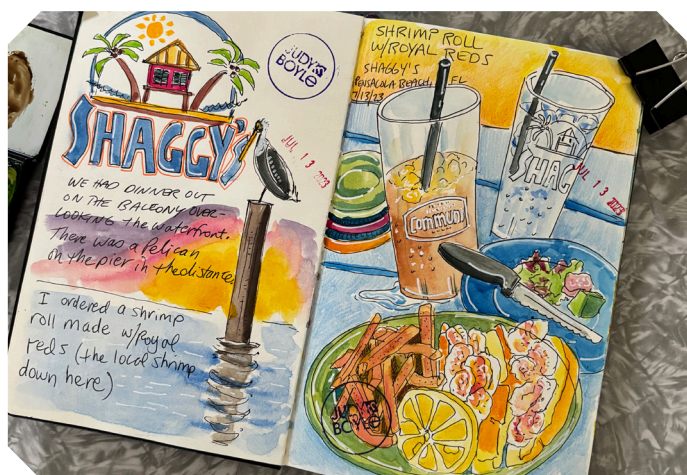 SHAGGY'S
JUDY'S
BOYLE
JUL 13 2023
WE HAD DINNER OUT
ON THE BALCONY OVER-
LOOKING the WATERFRONT.
There was a Pelican
on the pier in the distance.
I ordered a shrimp
roll made w/Royal
reds (the local shrimp
down here)
SHRIMP ROLL
W/ROYAL REDS
SHAGGY'S
PENSACOLA BEACH, FL
7/13/23
Communi
SHAG
JUL 13 2023
JUDY'S
BOYLE